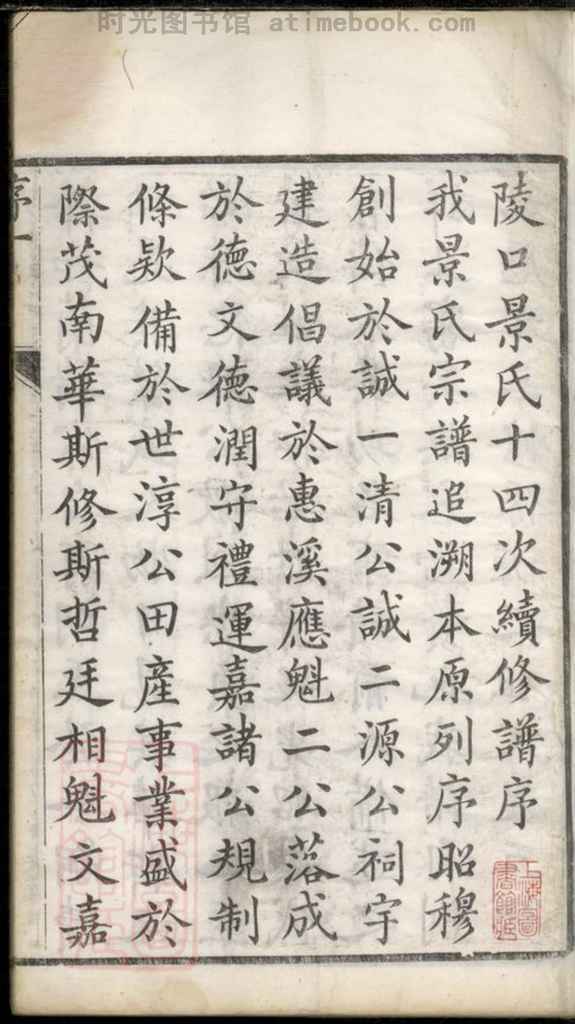 时光图书馆 atimebook.com
陵口景氏十四次續修譜序
我景氏宗譜追溯本原列序昭穆
創始於誠一清公誠二源公祠宇
建造倡議於惠溪應魁二公落成
於德文德潤守禮運嘉諸公規制
條欵備於世淳公田產事業盛於
際茂南華斯修斯哲廷相魁文嘉
序一